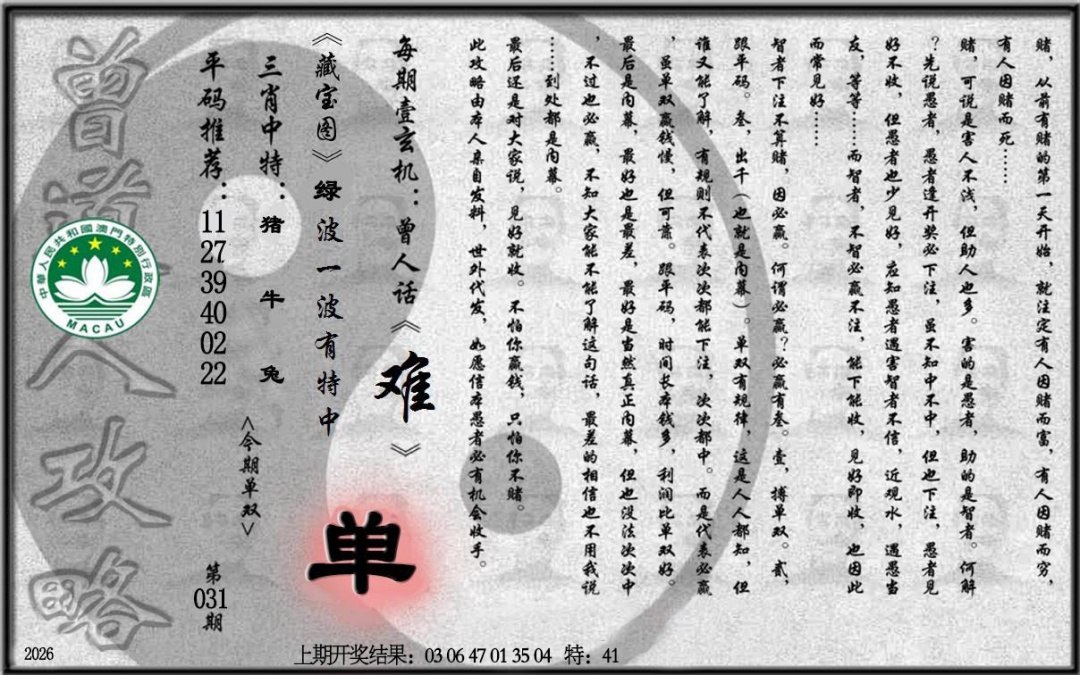 赌，从前有赌的第一天开始，就注定有人因赌而富，有人因赌而穷，
有人因赌而死……
赌，可说是害人不浅，但助人也多。害的是愚者，助的是智者。何解
？先说愚者，愚者逢开奖必下注，虽不知中不中，但也下注，愚者见
好不收，但愚者也少见好，应知愚者遇害智者不信，近观水，遇愚当
友，等等……而智者，不智必赢不注，能下能收，见好即收，也因此
而常见好……
智者下注不算赌，因必赢。何谓必赢？必赢有叁。壹，搏单双。贰，
跟平码。叁，出千（也就是内幕）。单双有规律，这是人人都知，但
谁又能了解，有规则不代表次次都能下注，次次都中。而是代表必赢
，虽单双赢钱慢，但可靠。跟平码，时间长本钱多，利润比单双好。
最后是内幕，最好也是最差，最好是当然真正内幕，但也没法次次中
，不过也必赢，不知大家能不能了解这句话，最差的相信也不用我说
……到处都是内幕。
最后还是对大家说，见好就收。不怕你赢钱，只怕你不赌。
此攻略由本人亲自发料，世外代发，如愿信本愚者必有机会收手。
每期壹玄机：曾人话《难》
《藏宝图》绿波一波有特中
单
三肖中特：猪 牛 兔
<今期单双>
平码推荐：11 27 39 40 02 22
第031期
曾道人攻略
中華人民共和國澳門特別行政區
MACAU
2026
上期开奖结果：03 06 47 01 35 04 特：41